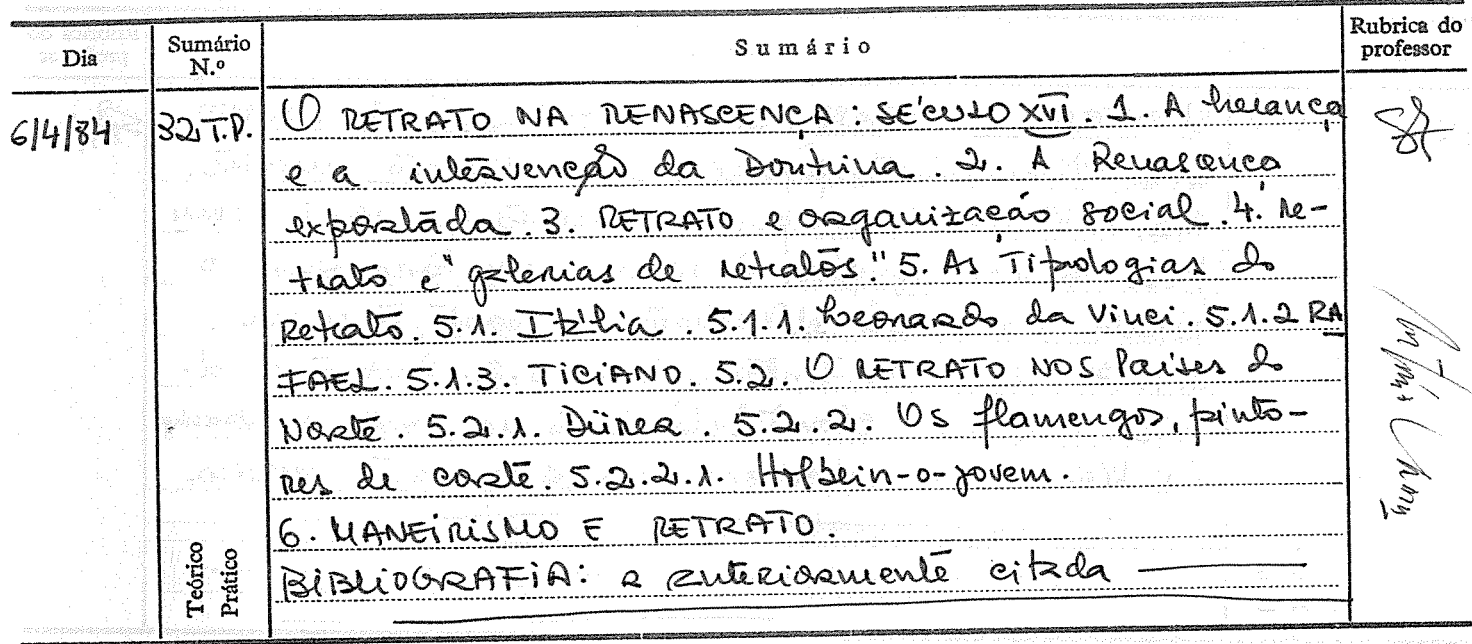 Dia Sumário N.º Sumário Rubrica do professor
6/4/84 32 T.P. O RETRATO NA RENASCENÇA: SÉCULO XVI. 1. A herança
e a intervenção da Doutrina. 2. A Renascença
exportada. 3. RETRATO e organização social. 4. Re-
trato e "galerias de retratos." 5. As Tipologias do
Retrato. 5.1. Itália. 5.1.1. Leonardo da Vinci. 5.1.2 RA
FAEL. 5.1.3. TICIANO. 5.2. O RETRATO NOS Países do
Norte. 5.2.1. Dürer. 5.2.2. Os flamengos, pinto-
res de corte. 5.2.2.1. Holbein-o-jovem.
6. MANEIRISMO E RETRATO.
BIBLIOGRAFIA: a anteriormente citada
Teórico
Prático